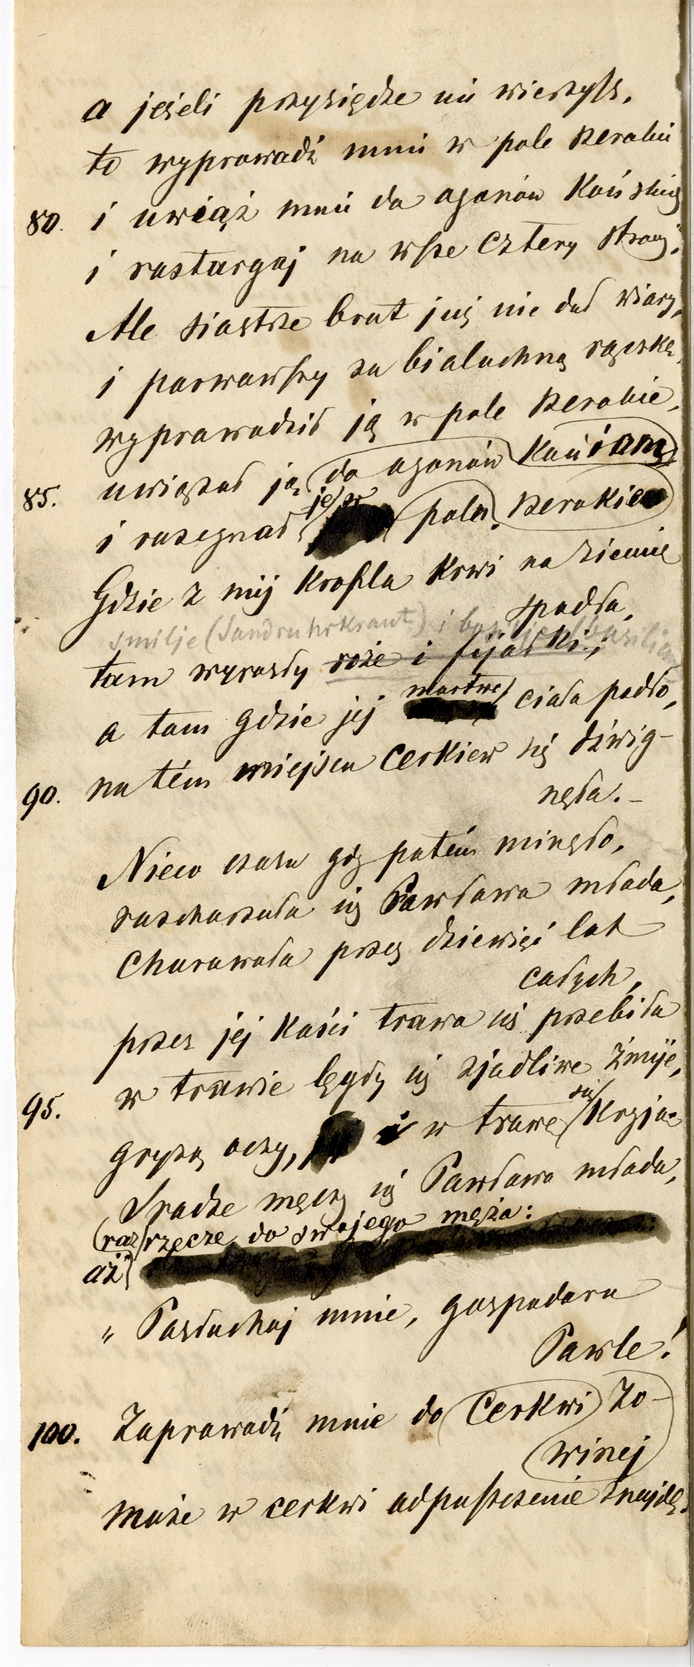 a jeżeli przysiędze mi wierzysz,
to wyprowadź mnie w pole szerokie
80. i uwiąż mnie do ogonów końskich
i roztargaj na wsze cztery strony.
Ale siostrze brat już nie dał wiary,
i porwawszy za bieluchną rączkę,
wyprowadził ją w pole szerokie,
85. uwiązał ją do ogonów koniom
i rozegnał je w polu szerokiem
Gdzie z niéj kropla krwi na ziemię
spadła,
smilje (Sandruhrkraut) i
tam wyrosły róże i fijołki;
a tam gdzie jej martwe ciało padło,
90. na tém miejscu cerkiew się dźwig-
nęła.–
Nieco czasu gdy potém minęło,
rozchorzała się Pawłowa młoda,
chorowała przez dziewięć lat
całych,
przez jej kości trawa się przebiła
95. w trawie lęgły się zjadliwe żmije,
gryzą oczy, w trawę się kryjąc
Srodze męczy się Pawłowa młoda,
raz rzecze do swojego męża:
aż
„Posłuchaj mnie, gospodaru
Pawle!
100. Zaprowadź mnie do cerkwi zo-
winej
może w cerkwi odpuszczenie znajdę.